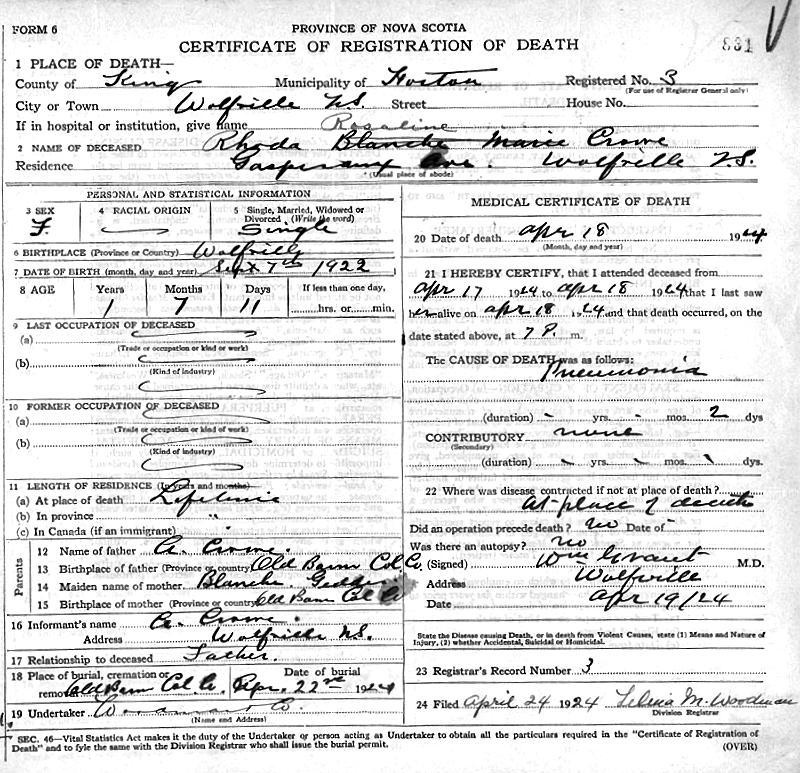 FORM 6
PROVINCE OF NOVA SCOTIA
CERTIFICATE OF REGISTRATION OF DEATH
831
1 PLACE OF DEATH—
County of Kings Municipality of Horton Registered No. 3
(For use of Registrar General only)
City or Town Wolfville N.S. Street House No.
If in hospital or institution, give name
Rosaline
2 NAME OF DECEASED Rhoda Blanche Marie Crowe
Residence Gaspereaux Ave. Wolfville N.S.
(Usual place of abode)
PERSONAL AND STATISTICAL INFORMATION
3 SEX F.
4 RACIAL ORIGIN
5 Single, Married, Widowed or Divorced (Write the word) Single
6 BIRTHPLACE (Province or Country) Wolfville
7 DATE OF BIRTH (month, day and year) Sept 7th 1922
8 AGE Years Months Days If less than one day,
1 7 11 hrs. or min.
9 LAST OCCUPATION OF DECEASED
(a)
(Trade or occupation or kind of work)
(b)
(Kind of industry)
10 FORMER OCCUPATION OF DECEASED
(a)
(Trade or occupation or kind of work)
(b)
(Kind of industry)
11 LENGTH OF RESIDENCE (In years and months)
(a) At place of death Lifetime
(b) In province "
(c) In Canada (if an immigrant) "
Parents
12 Name of father A. Crowe.
13 Birthplace of father (Province or country) Old Barn Col Co.
14 Maiden name of mother Blanche
15 Birthplace of mother (Province or country) Old Barn Col Co
16 Informant's name A. Crowe
Address Wolfville N.S.
17 Relationship to deceased Father.
18 Place of burial, cremation or removal Old Barn Col Co. Date of burial Apr. 22nd 1924
19 Undertaker
(Name and Address)
MEDICAL CERTIFICATE OF DEATH
20 Date of death Apr 18 1924
(Month, day and year)
21 I HEREBY CERTIFY, that I attended deceased from
Apr 17 1924 to Apr 18 1924 that I last saw
her alive on Apr 18 1924 and that death occurred, on the
date stated above, at 7 P. m.
The CAUSE OF DEATH was as follows:
Pneumonia
(duration) - yrs. - mos. 2 dys
CONTRIBUTORY none
(Secondary)
(duration) yrs. mos. dys.
22 Where was disease contracted if not at place of death?
At place of death
Did an operation precede death? No Date of -
Was there an autopsy? No
(Signed) Wm Grant M.D.
Address Wolfville
Date Apr 19/24
State the Disease causing Death, or in death from Violent Causes, state (1) Means and Nature of
Injury, (2) whether Accidental, Suicidal or Homicidal.
23 Registrar's Record Number 3
24 Filed April 24 1924 Selina M. Woodman
Division Registrar
SEC. 46—Vital Statistics Act makes it the duty of the Undertaker or person acting as Undertaker to obtain all the particulars required in the "Certificate of Registration of
Death" and to fyle the same with the Division Registrar who shall issue the burial permit.
(OVER)